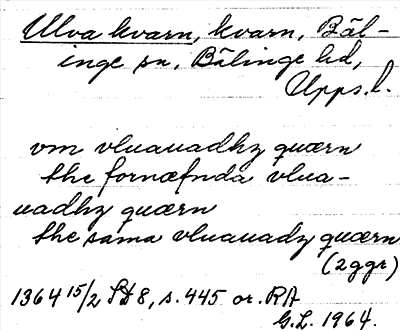 Ulva kvarn, kvarn, Bäl-
inge sn, Bälinge hd,
Upps.l.
vm vluauadhz quærn
the fornæfnda vlua-
uadhz quærn
the sama vluauadz quærn
(2ggr)
1364 15/2 SD8, s.445 or. RA
G.L. 1964.